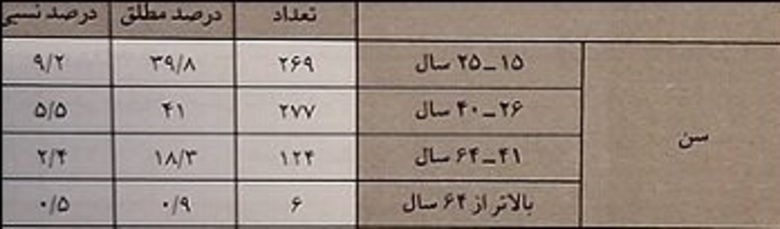 تعداد درصد مطلق درصد نسبی
سن
۱۵ـ۲۵ سال ۲۶۹ ۳۹/۸ ۹/۲
۲۶ـ۴۰ سال ۲۷۷ ۴۱ ۵/۵
۴۱ـ۶۴ سال ۱۲۴ ۱۸/۳ ۲/۴
بالاتر از ۶۴ سال ۶ ۰/۹ ۰/۵